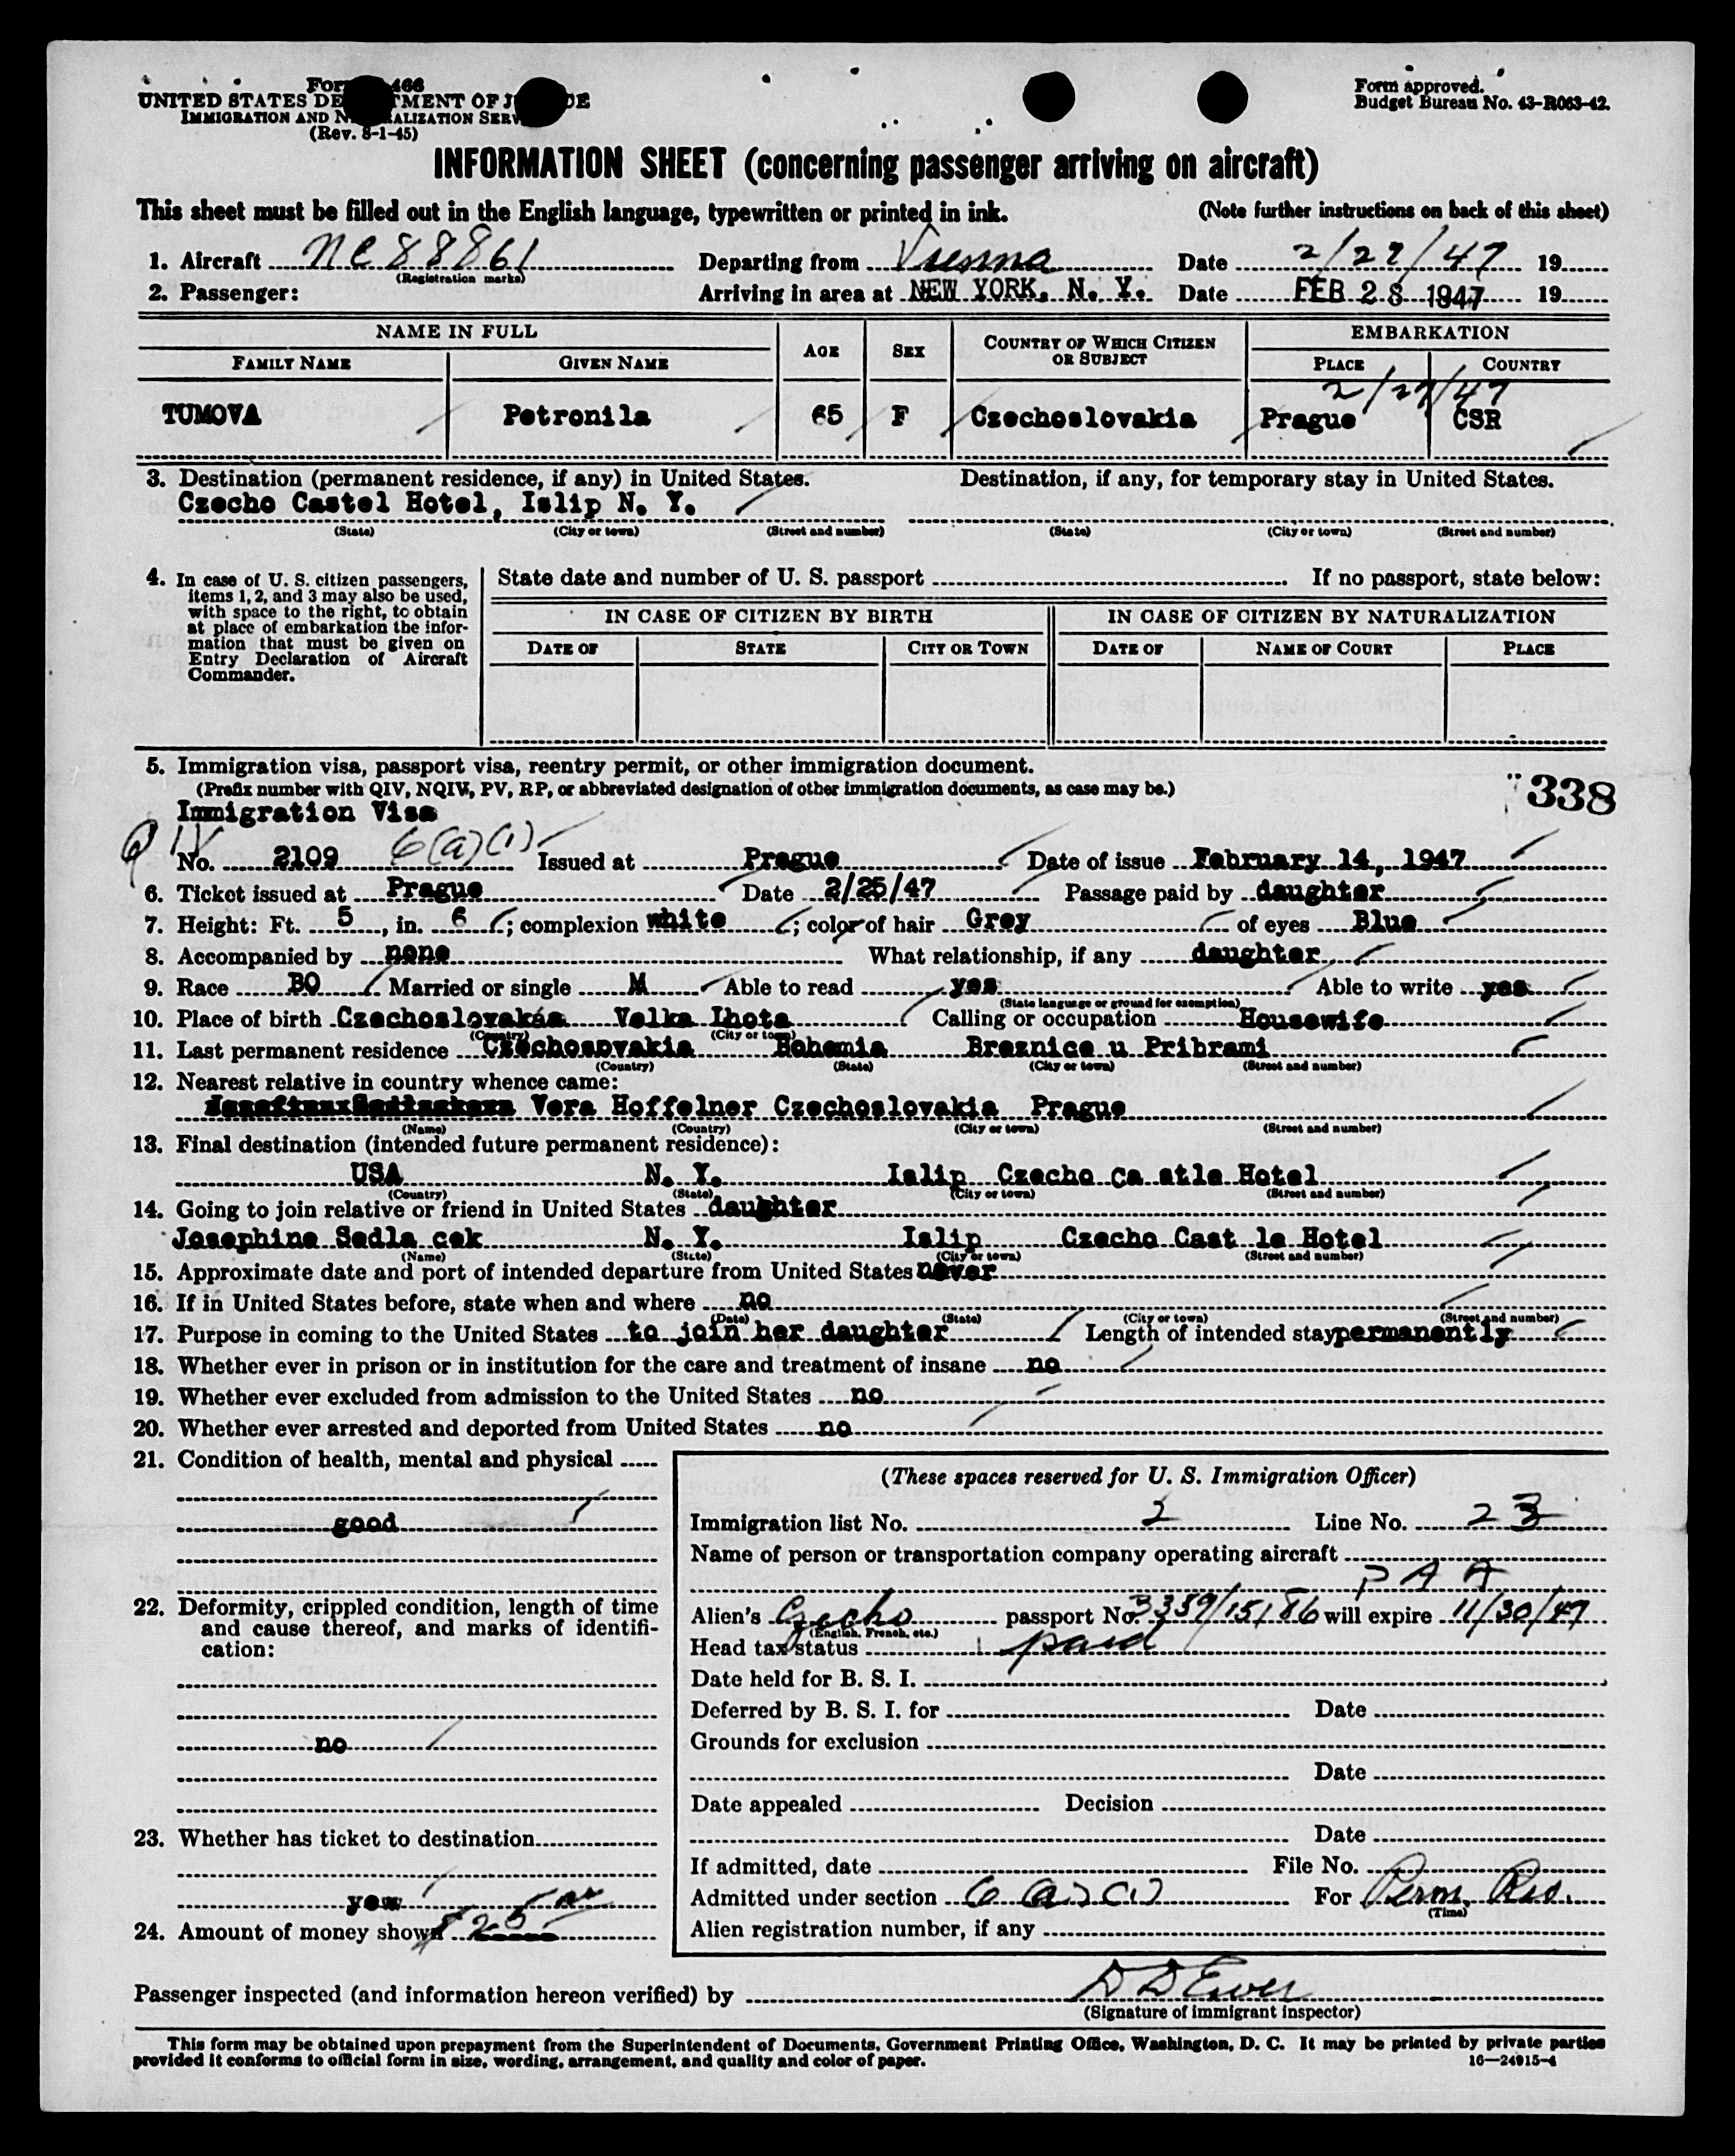 For 466
UNITED STATES DE TMENT OF J CE
IMMIGRATION AND N ALIZATION SERV
(Rev. 8-1-45)
Form approved.
Budget Bureau No. 43-R063-42.
INFORMATION SHEET (concerning passenger arriving on aircraft)
This sheet must be filled out in the English language, typewritten or printed in ink. (Note further instructions on back of this sheet)
1. Aircraft NC 88861 Departing from Vienna Date 2/27/47 19
(Registration marks)
2. Passenger: Arriving in area at NEW YORK, N. Y. Date FEB 28 1947 19
NAME IN FULL AGE SEX COUNTRY OF WHICH CITIZEN OR SUBJECT EMBARKATION
FAMILY NAME GIVEN NAME PLACE COUNTRY
2/27/47
TUMOVA Petronila 65 F Czechoslovakia Prague CSR
3. Destination (permanent residence, if any) in United States. Destination, if any, for temporary stay in United States.
Czecho Castel Hotel, Islip N. Y.
(State) (City or town) (Street and number) (State) (City or town) (Street and number)
4. In case of U. S. citizen passengers,
items 1, 2, and 3 may also be used,
with space to the right, to obtain
at place of embarkation the infor-
mation that must be given on
Entry Declaration of Aircraft
Commander.
State date and number of U. S. passport If no passport, state below:
IN CASE OF CITIZEN BY BIRTH IN CASE OF CITIZEN BY NATURALIZATION
DATE OF STATE CITY OR TOWN DATE OF NAME OF COURT PLACE
5. Immigration visa, passport visa, reentry permit, or other immigration document.
(Prefix number with QIV, NQIV, PV, RP, or abbreviated designation of other immigration documents, as case may be.)
338
Immigration Visa
QIV No. 2109 6(a)(1) Issued at Prague Date of issue February 14, 1947
6. Ticket issued at Prague Date 2/25/47 Passage paid by daughter
7. Height: Ft. 5, in. 6; complexion white; color of hair Grey of eyes Blue
8. Accompanied by none What relationship, if any daughter
9. Race BO Married or single M Able to read yes Able to write yes
(State language or ground for exemption)
10. Place of birth Czechoslovakáa Velka Lhota Calling or occupation Housewife
(Country) (City or town)
11. Last permanent residence Czechosovakia Bohemia Breznice u Pribrami
(Country) (State) (City or town) (Street and number)
12. Nearest relative in country whence came:
Vera Hoffelner Czechoslovakia Prague
(Name) (Country) (City or town) (Street and number)
13. Final destination (intended future permanent residence):
USA N. Y. Islip Czecho Ca stle Hotel
(Country) (State) (City or town) (Street and number)
14. Going to join relative or friend in United States daughter
Josephine Sedla cek N. Y. Islip Czecho Cast le Hotel
(Name) (State) (City or town) (Street and number)
15. Approximate date and port of intended departure from United States never
16. If in United States before, state when and where no
(Date) (State) (City or town) (Street and number)
17. Purpose in coming to the United States to join her daughter Length of intended stay permanently
18. Whether ever in prison or in institution for the care and treatment of insane no
19. Whether ever excluded from admission to the United States no
20. Whether ever arrested and deported from United States no
21. Condition of health, mental and physical
good
22. Deformity, crippled condition, length of time
and cause thereof, and marks of identifi-
cation:
no
23. Whether has ticket to destination
yew
24. Amount of money shown $25
(These spaces reserved for U. S. Immigration Officer)
Immigration list No. 2 Line No. 23
Name of person or transportation company operating aircraft
P A A
Alien's Czecho passport No. 3359/15186 will expire 11/30/47
(English, French, etc.)
Head tax status paid
Date held for B. S. I.
Deferred by B. S. I. for Date
Grounds for exclusion
Date
Date appealed Decision
Date
If admitted, date File No.
Admitted under section 6(a)(1) For Perm. Res.
(Time)
Alien registration number, if any
Passenger inspected (and information hereon verified) by D D Ewer
(Signature of immigrant inspector)
This form may be obtained upon prepayment from the Superintendent of Documents, Government Printing Office, Washington, D. C. It may be printed by private parties
provided it conforms to official form in size, wording, arrangement, and quality and color of paper.
16—24915-4